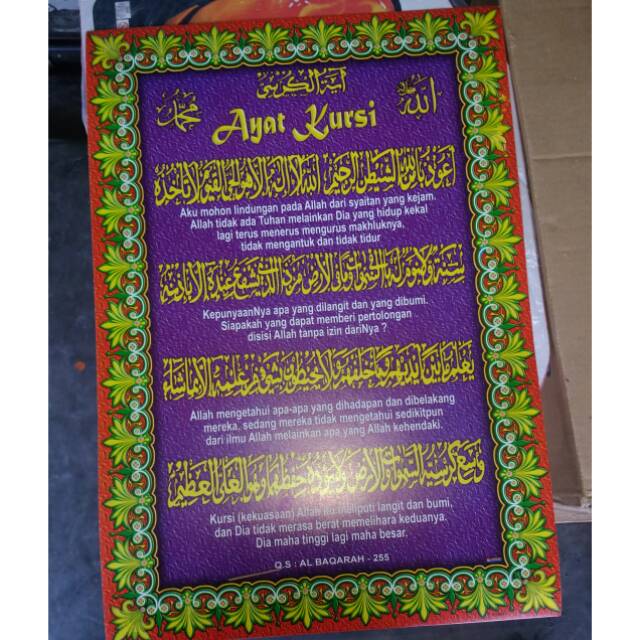 آية الكرسي
محمد
الله
Ayat Kursi
أعوذ بالله الشيطن الرجيم الله لا إله إلا هو الحي القيوم لا تأخذه
Aku mohon lindungan pada Allah dari syaitan yang kejam.
Allah tidak ada Tuhan melainkan Dia yang hidup kekal
lagi terus menerus mengurus makhluknya,
tidak mengantuk dan tidak tidur
سنة ولا نوم له ما في السموات وما في الأرض من ذا الذي يشفع عنده إلا بإذنه
KepunyaanNya apa yang dilangit dan yang dibumi.
Siapakah yang dapat memberi pertolongan
disisi Allah tanpa izin dariNya ?
يعلم ما بين أيديهم وما خلفهم ولا يحيطون بشيء من علمه إلا بما شاء
Allah mengetahui apa-apa yang dihadapan dan dibelakang
mereka, sedang mereka tidak mengetahui sedikitpun
dari ilmu Allah melainkan apa yang Allah kehendaki.
وسع كرسيه السموات والأرض ولا يئوده حفظهما وهو العلي العظيم
Kursi (kekuasaan) Allah itu meliputi langit dan bumi,
dan Dia tidak merasa berat memelihara keduanya.
Dia maha tinggi lagi maha besar.
Q.S : AL BAQARAH - 255